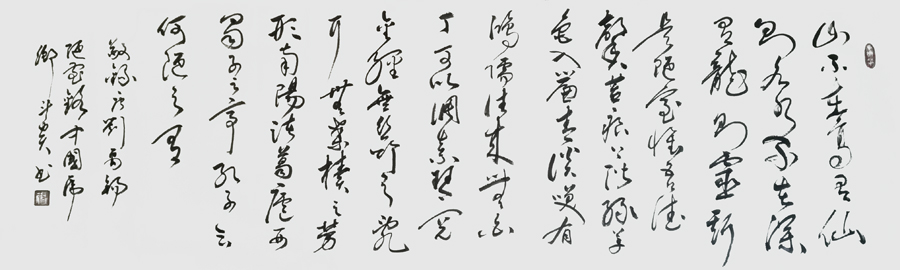 山不在高有仙
则名水不在深
有龍则靈斯
是陋室惟吾德
馨苔痕上階绿草
色入簾青谈笑有
鸿儒往来無白
丁可以调素琴阅
金經無丝竹之乱
耳無案牍之劳
形南陽诸葛廬西
蜀子云亭孔子云
何陋之有
敬録唐刘禹锡
陋室铭中國虎
鄉斗贵书